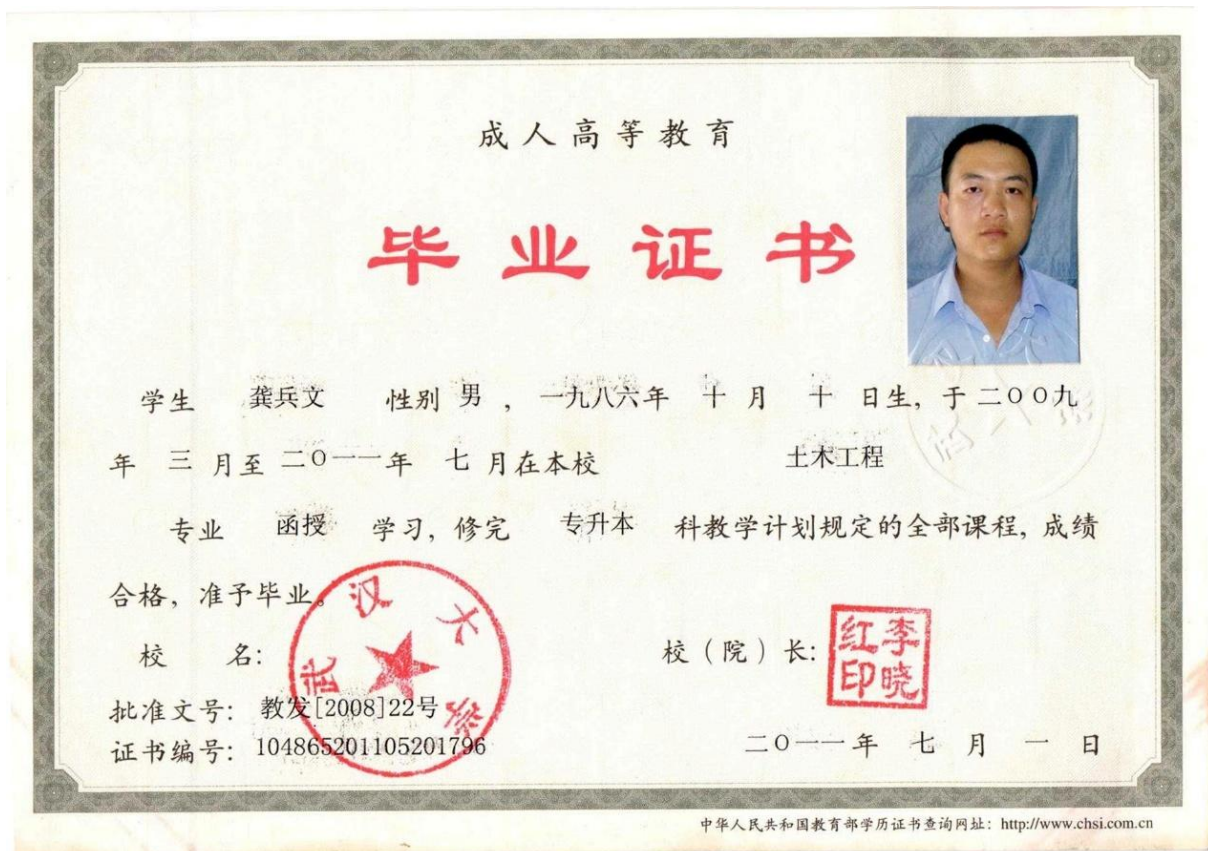 成人高等教育
毕业证书
学生 龚兵文 性别 男 ，一九八六年 十 月 十 日生，于二〇〇九
年 三 月至 二〇一一年 七 月在本校 土木工程
专业 函授 学习，修完 专升本 科教学计划规定的全部课程，成绩
合格，准予毕业。
校 名： 武汉大学
校（院）长： 李晓红印
批准文号： 教发[2008]22号
证书编号： 104865201105201796
二〇一一年 七 月 一 日
中华人民共和国教育部学历证书查询网址：http://www.chsi.com.cn